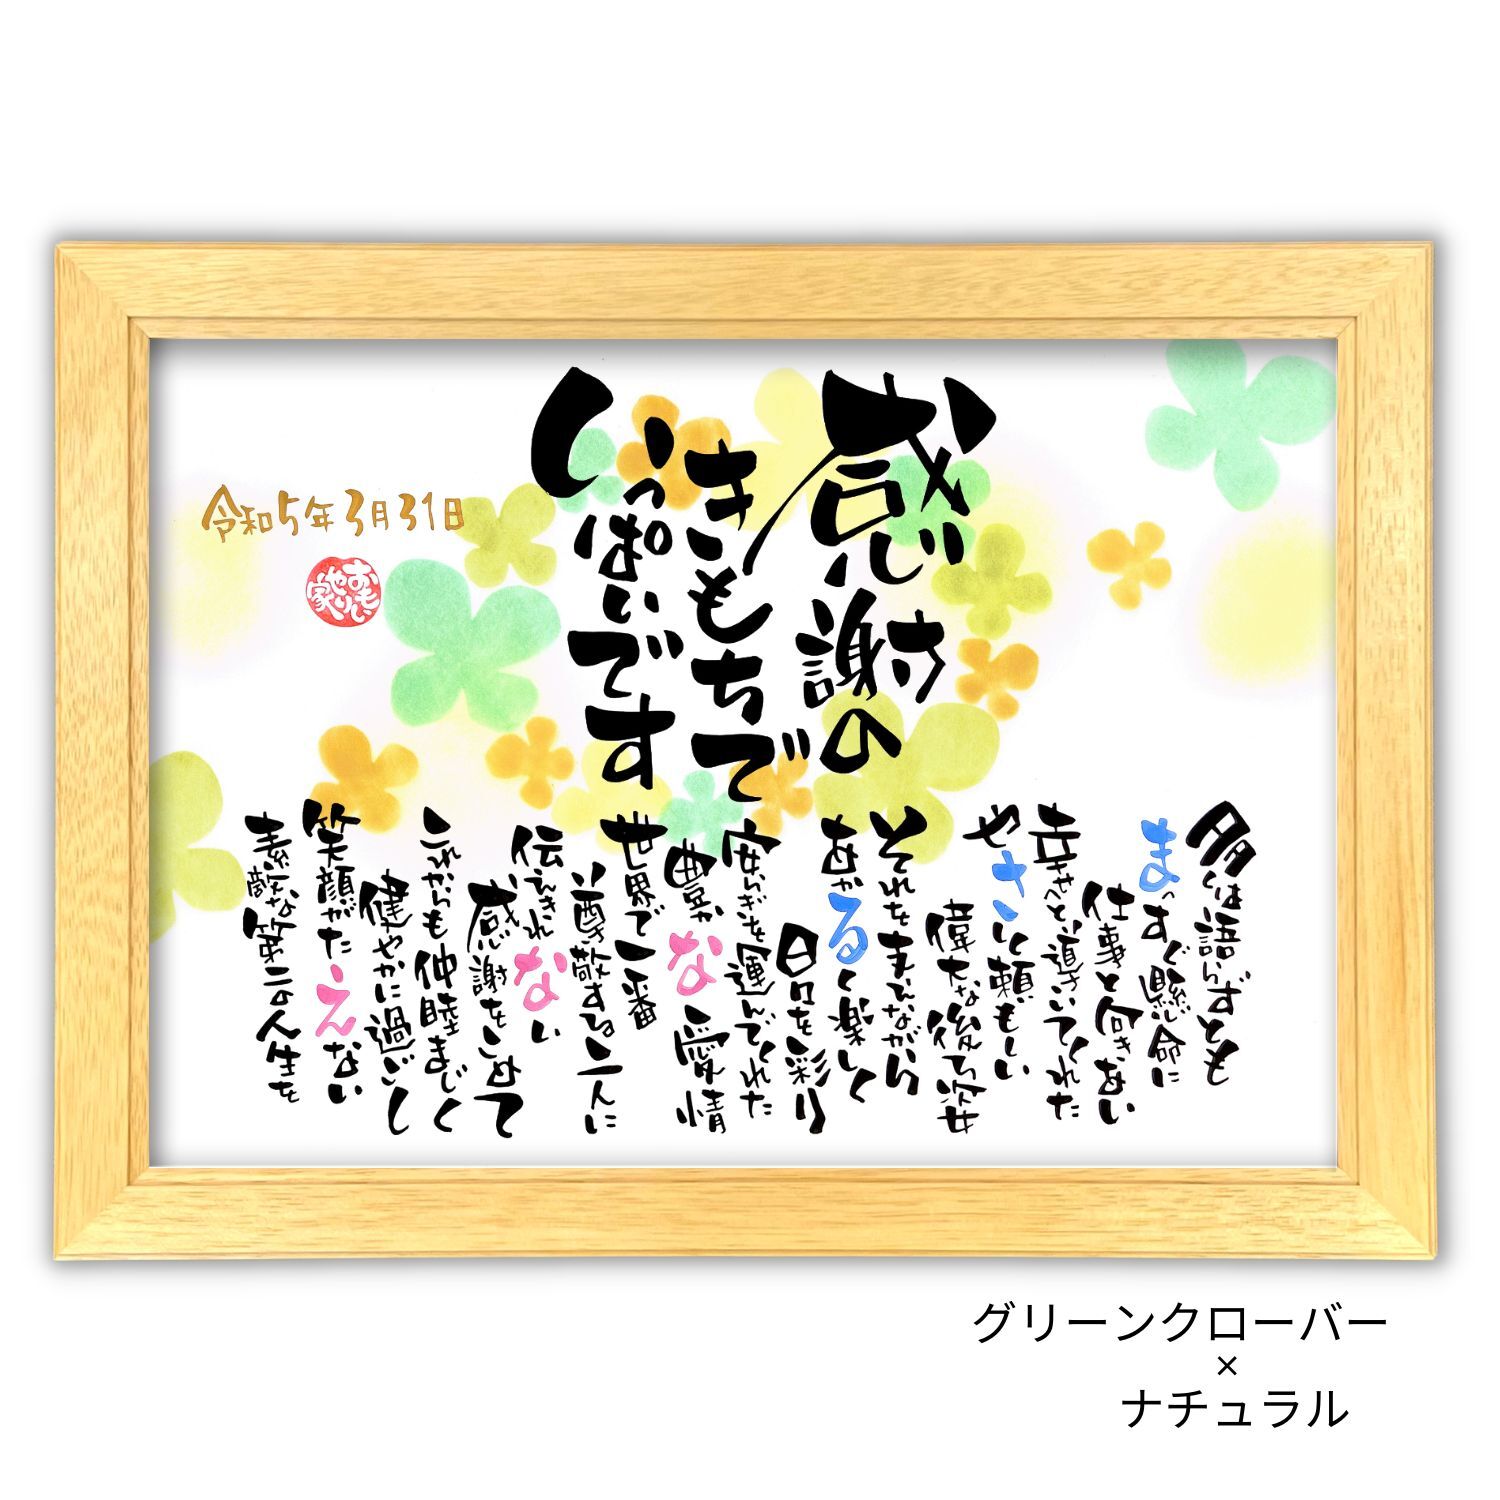 感謝の
きもちで
いっぱいです
令和5年3月31日
おもい
やり
家
多くは語らずとも
まっすぐ懸命に
仕事と向きあい
幸せへと導いてくれた
やさしく頼もしい
偉大な後ろ姿
それをまなびながら
あかるく楽しく
日々を彩り
安らぎを運んでくれた
豊かな愛情
世界で一番
尊敬する二人に
伝えきれない
感謝をこめて
これからも仲睦まじく
健やかに過ごし
笑顔がたえない
素敵な第二の人生を
グリーンクローバー
×
ナチュラル